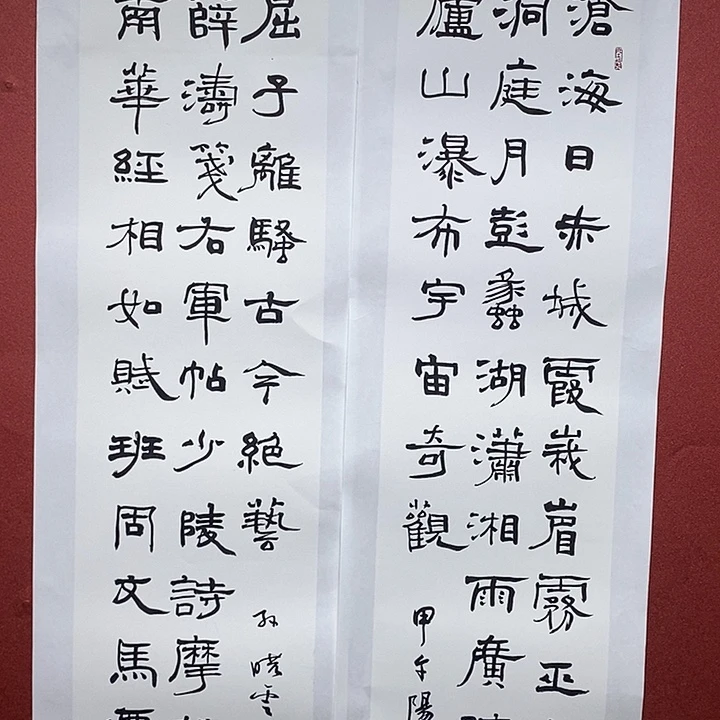 滄海日赤城霞峩嵋霧巫
洞庭月彭蠡湖瀟湘雨廣
廬山瀑布宇宙奇觀
甲午陽
南華經相如賦班固文馬
薛濤箋右軍帖少陵詩摩
屈子離騷古今絕藝
孙曉雲